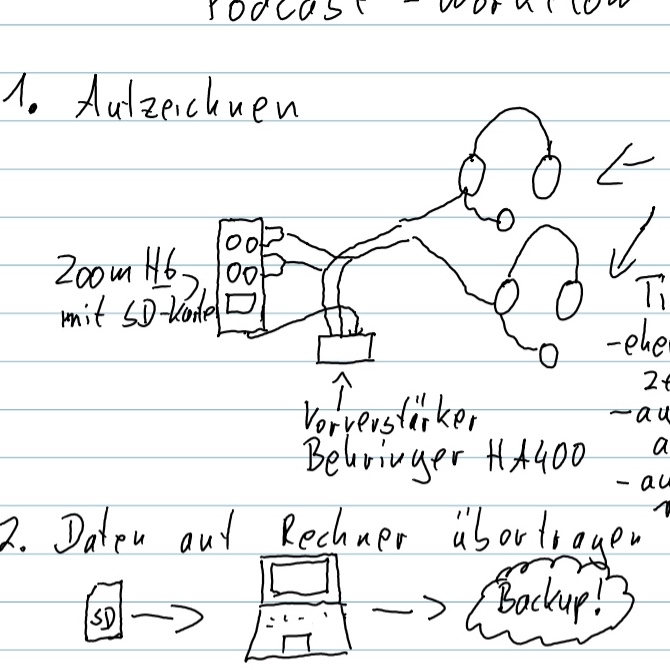 Podcast - Workflow
1. Aufzeichnen
Zoom H6
mit SD-Karte
Vorverstärker
Behringer HA400
Ti
-ehe
-au
a
- au
2. Daten auf Rechner übertragen
SD
Backup!